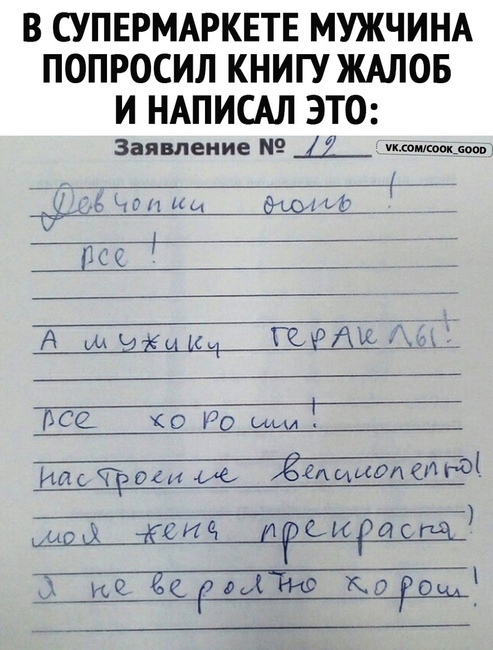 В СУПЕРМАРКЕТЕ МУЖЧИНА
ПОПРОСИЛ КНИГУ ЖАЛОБ
И НАПИСАЛ ЭТО:
Заявление № 12
VK.COM/COOK_GOOD
Девчонки огонь!
Все!
А мужики ГЕРАКЛЫ!
Все хороши!
Настроение великолепно!
моя жена прекрасна!
Я не вероятно хорош!